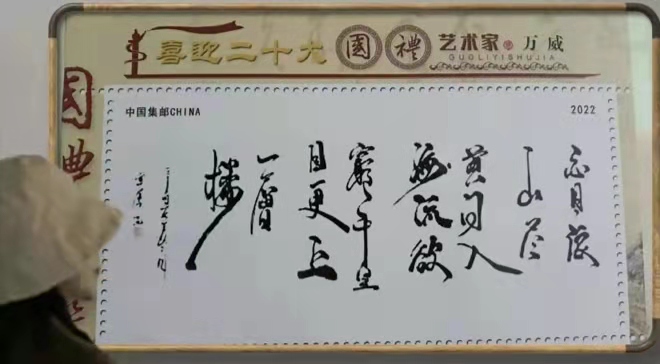 喜迎二十大
國禮
艺术家 万威
GUOLIYISHUJIA
国典
中国集邮CHINA
2022
白日依
山尽
黄河入
海流欲
窮千里
目更上
一層
樓